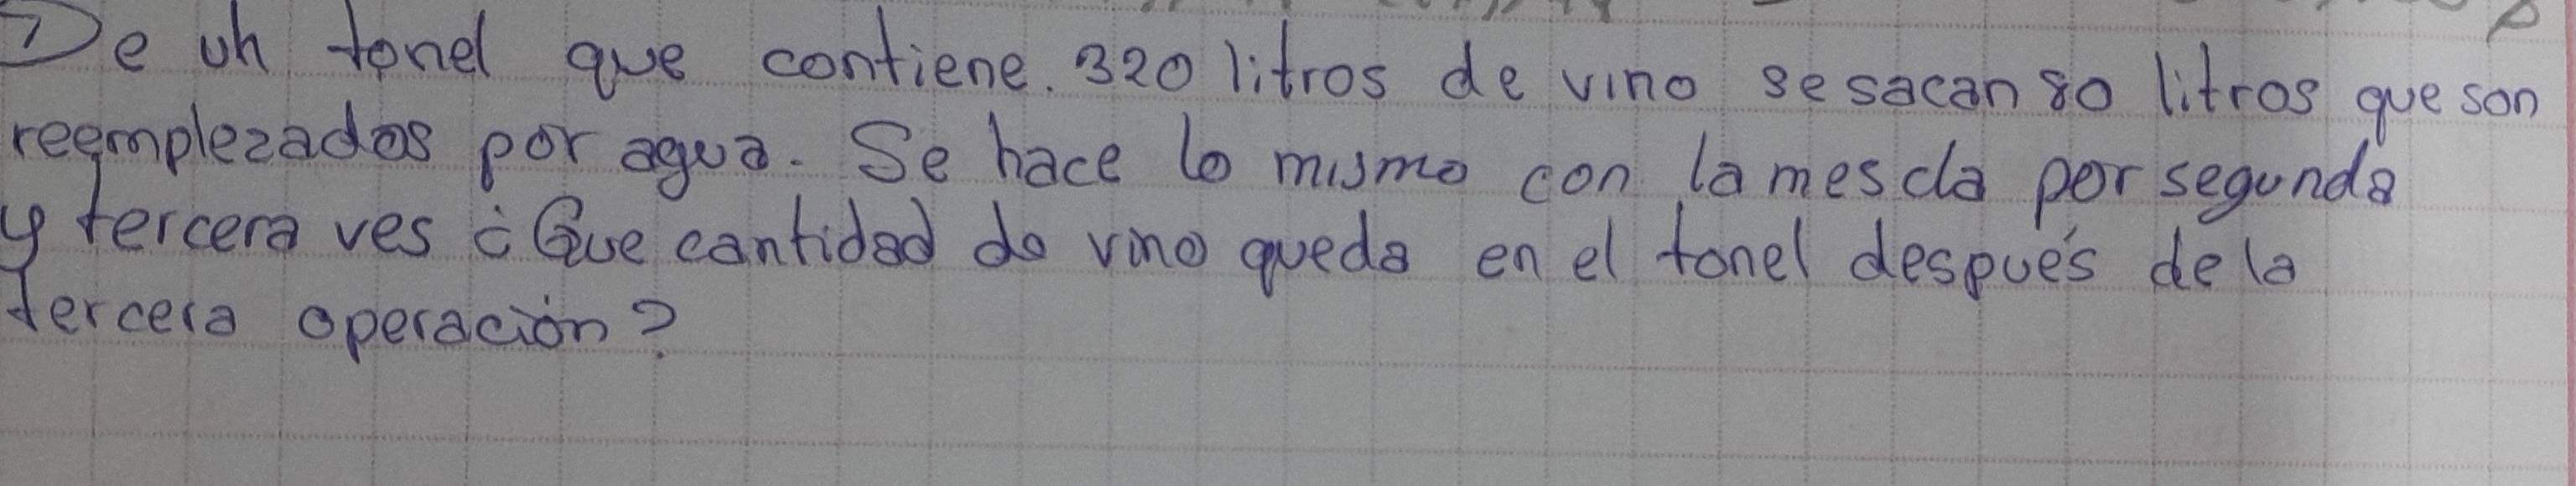 De un tonel que contiene. 320 litros de vino se sacan 80 litros que son
reemplezados por agua. Se hace lo mismo con la mescla por segunda
y tercera ves ¿Que cantidad de vino queda en el tonel después de la
tercera operación?